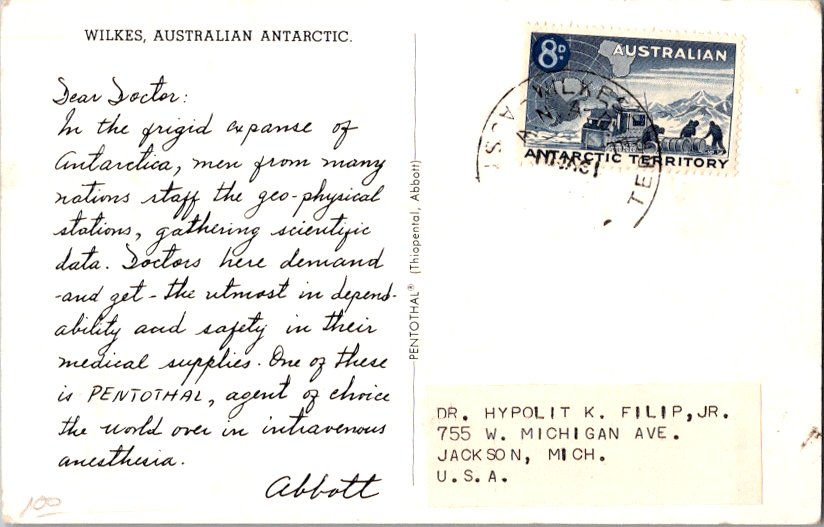 WILKES, AUSTRALIAN ANTARCTIC.
Dear Doctor:
In the frigid expanse of
Antarctica, men from many
nations staff the geo-physical
stations, gathering scientific
data. Doctors here demand
-and get - the utmost in depend-
ability and safety in their
medical supplies. One of these
is PENTOTHAL, agent of choice
the world over in intravenous
anesthesia.
Abbott
100
PENTOTHAL® (Thiopental, Abbott)
8D.
AUSTRALIAN
ANTARCTIC TERRITORY
WILKES
DR. HYPOLIT K. FILIP,JR.
755 W. MICHIGAN AVE.
JACKSON, MICH.
U.S.A.